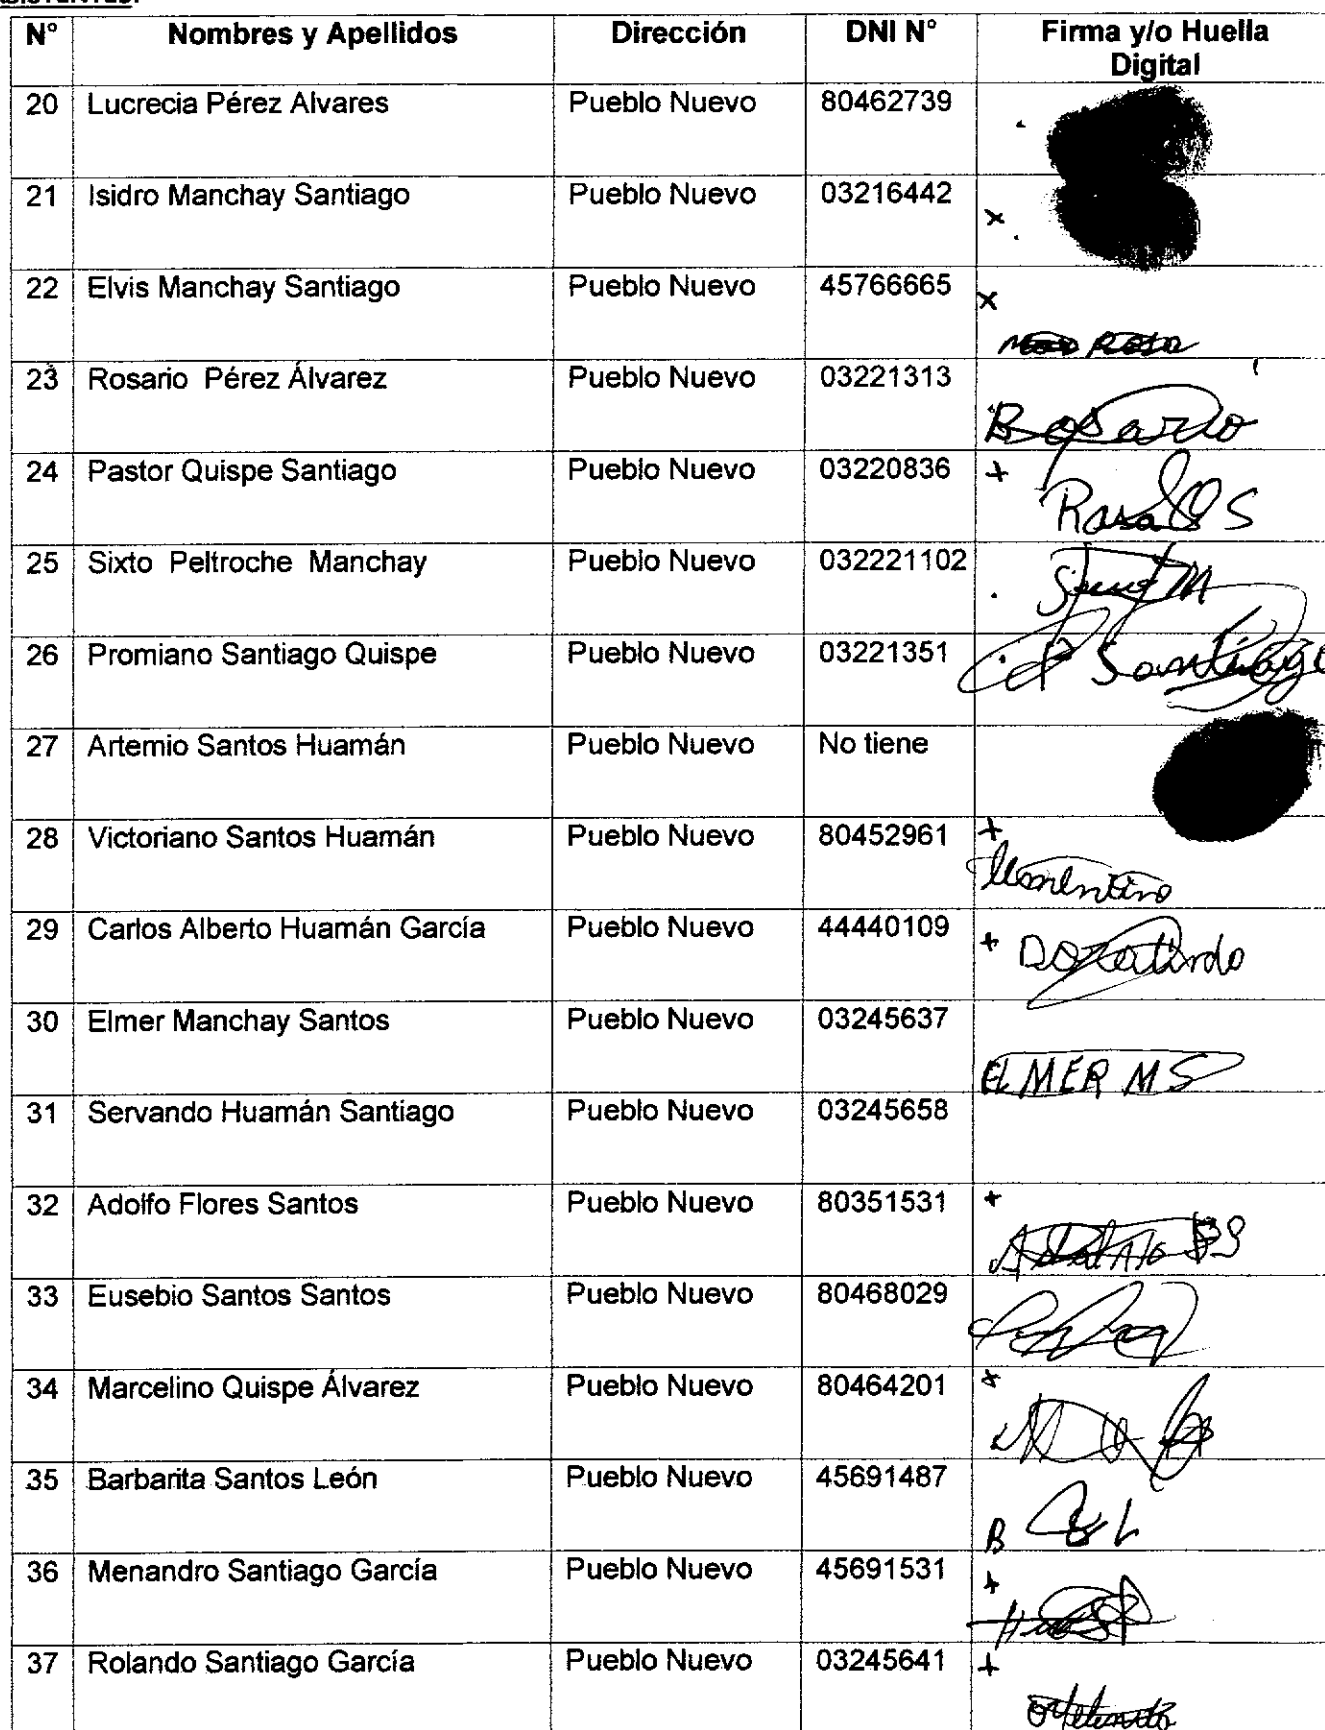 ASISTENTES:
N° Nombres y Apellidos Dirección DNI N° Firma y/o Huella
Digital
20 Lucrecia Pérez Alvares Pueblo Nuevo 80462739
21 Isidro Manchay Santiago Pueblo Nuevo 03216442
x
22 Elvis Manchay Santiago Pueblo Nuevo 45766665
x
23 Rosario Pérez Álvarez Pueblo Nuevo 03221313
Rosario
24 Pastor Quispe Santiago Pueblo Nuevo 03220836
+
25 Sixto Peltroche Manchay Pueblo Nuevo 032221102
26 Promiano Santiago Quispe Pueblo Nuevo 03221351
P Santiago
27 Artemio Santos Huamán Pueblo Nuevo No tiene
28 Victoriano Santos Huamán Pueblo Nuevo 80452961
+
29 Carlos Alberto Huamán García Pueblo Nuevo 44440109
+
30 Elmer Manchay Santos Pueblo Nuevo 03245637
ELMER MS
31 Servando Huamán Santiago Pueblo Nuevo 03245658
32 Adolfo Flores Santos Pueblo Nuevo 80351531
+
33 Eusebio Santos Santos Pueblo Nuevo 80468029
34 Marcelino Quispe Álvarez Pueblo Nuevo 80464201
x
35 Barbarita Santos León Pueblo Nuevo 45691487
36 Menandro Santiago García Pueblo Nuevo 45691531
+
37 Rolando Santiago García Pueblo Nuevo 03245641
+